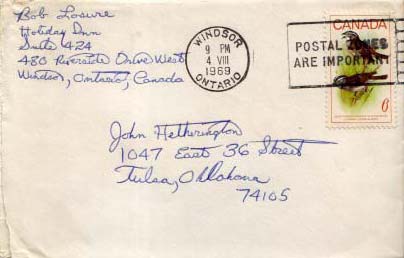 Bob Losure
Holiday Inn
Suite 424
480 Riverside Drive West
Windsor, Ontario, Canada
WINDSOR
9 PM
4 VIII
1969
ONTARIO
POSTAL ZONES
ARE IMPORTANT
CANADA
6
John Hetherington
1047 East 36 Street
Tulsa, Oklahoma
74105